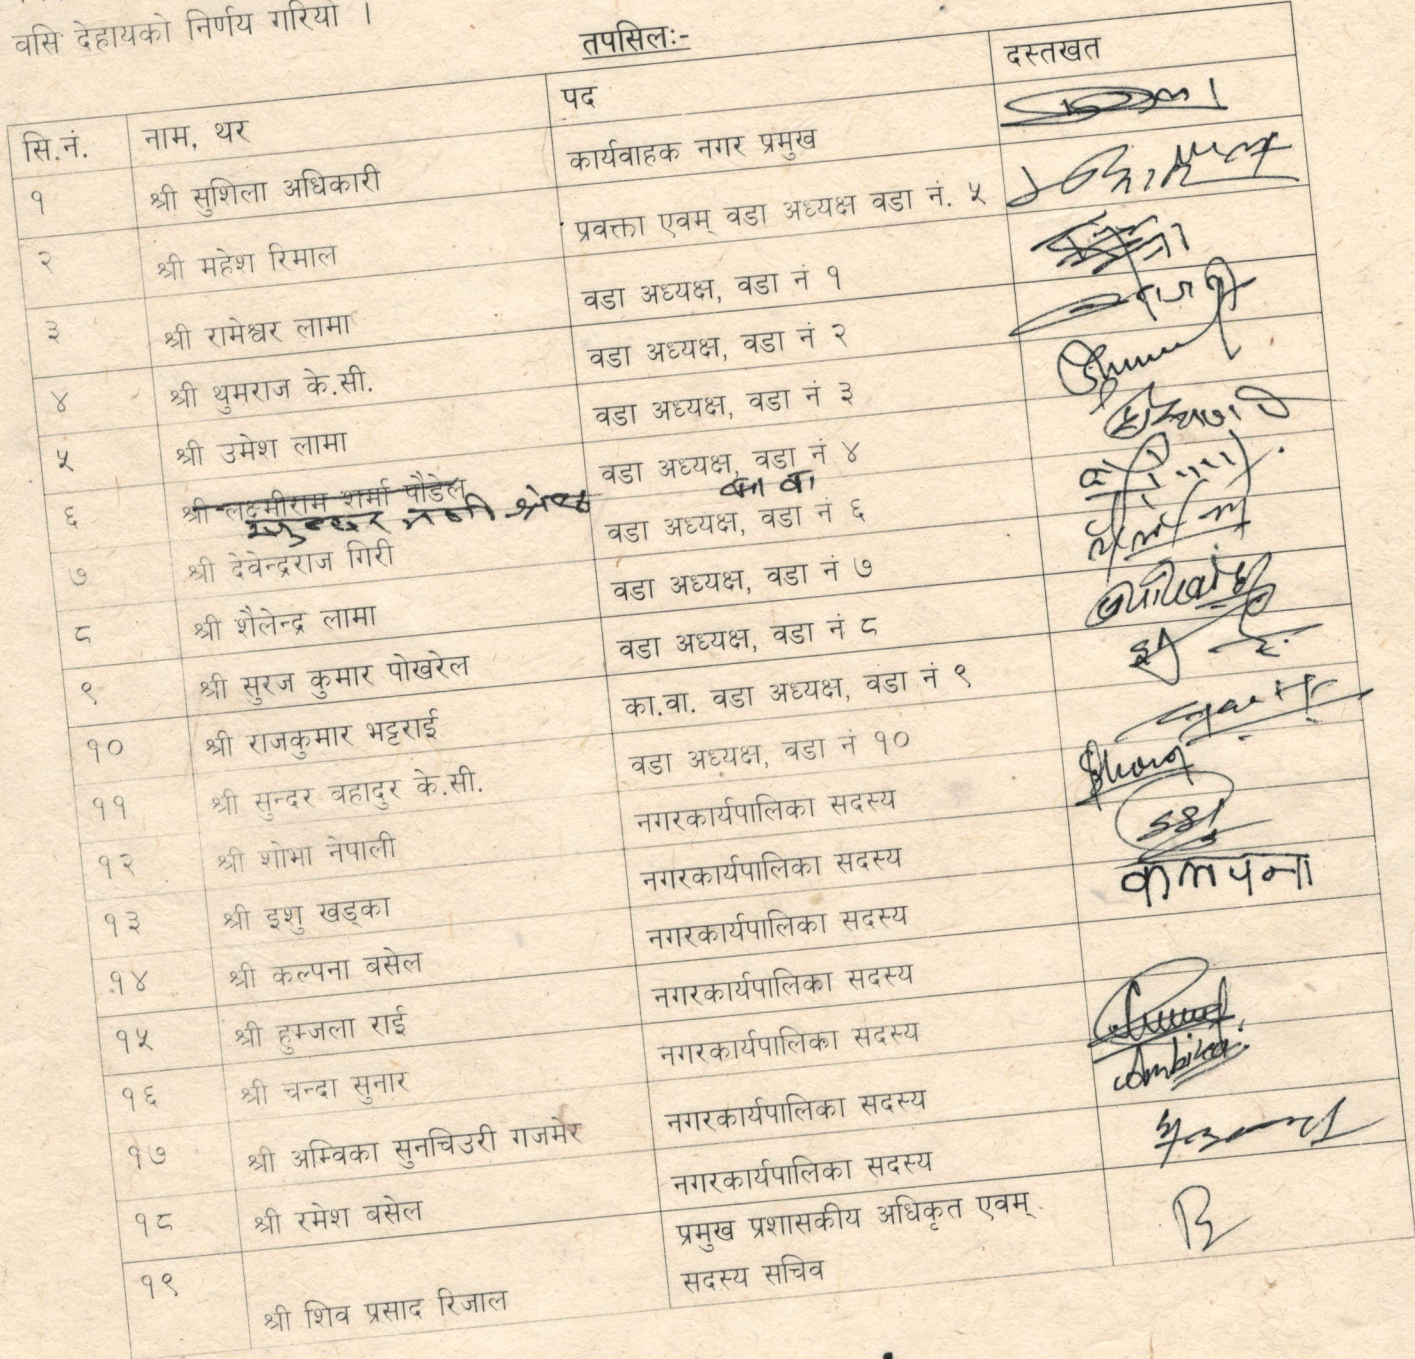 वसि देहायको निर्णय गरियो ।
तपसिलः-
सि.नं. नाम, थर पद दस्तखत
१ श्री सुशिला अधिकारी कार्यवाहक नगर प्रमुख
२ श्री महेश रिमाल प्रवक्ता एवम् वडा अध्यक्ष वडा नं. ५
३ श्री रामेश्वर लामा वडा अध्यक्ष, वडा नं १
४ श्री थुमराज के.सी. वडा अध्यक्ष, वडा नं २
५ श्री उमेश लामा वडा अध्यक्ष, वडा नं ३
६ श्री लक्ष्मीराम शर्मा पौडेल वडा अध्यक्ष, वडा नं ४
श्रेष्ठ का वा
७ श्री देवेन्द्रराज गिरी वडा अध्यक्ष, वडा नं ६
८ श्री शैलेन्द्र लामा वडा अध्यक्ष, वडा नं ७
९ श्री सुरज कुमार पोखरेल वडा अध्यक्ष, वडा नं ८
१० श्री राजकुमार भट्टराई का.वा. वडा अध्यक्ष, वडा नं ९
११ श्री सुन्दर वहादुर के.सी. वडा अध्यक्ष, वडा नं १०
१२ श्री शोभा नेपाली नगरकार्यपालिका सदस्य
१३ श्री इशु खड्का नगरकार्यपालिका सदस्य
१४ श्री कल्पना बसेल नगरकार्यपालिका सदस्य कल्पना
१५ श्री हुम्जला राई नगरकार्यपालिका सदस्य
१६ श्री चन्दा सुनार नगरकार्यपालिका सदस्य
१७ श्री अम्विका सुनचिउरी गजमेर नगरकार्यपालिका सदस्य Ambika
१८ श्री रमेश बसेल नगरकार्यपालिका सदस्य
१९ श्री शिव प्रसाद रिजाल प्रमुख प्रशासकीय अधिकृत एवम्
सदस्य सचिव